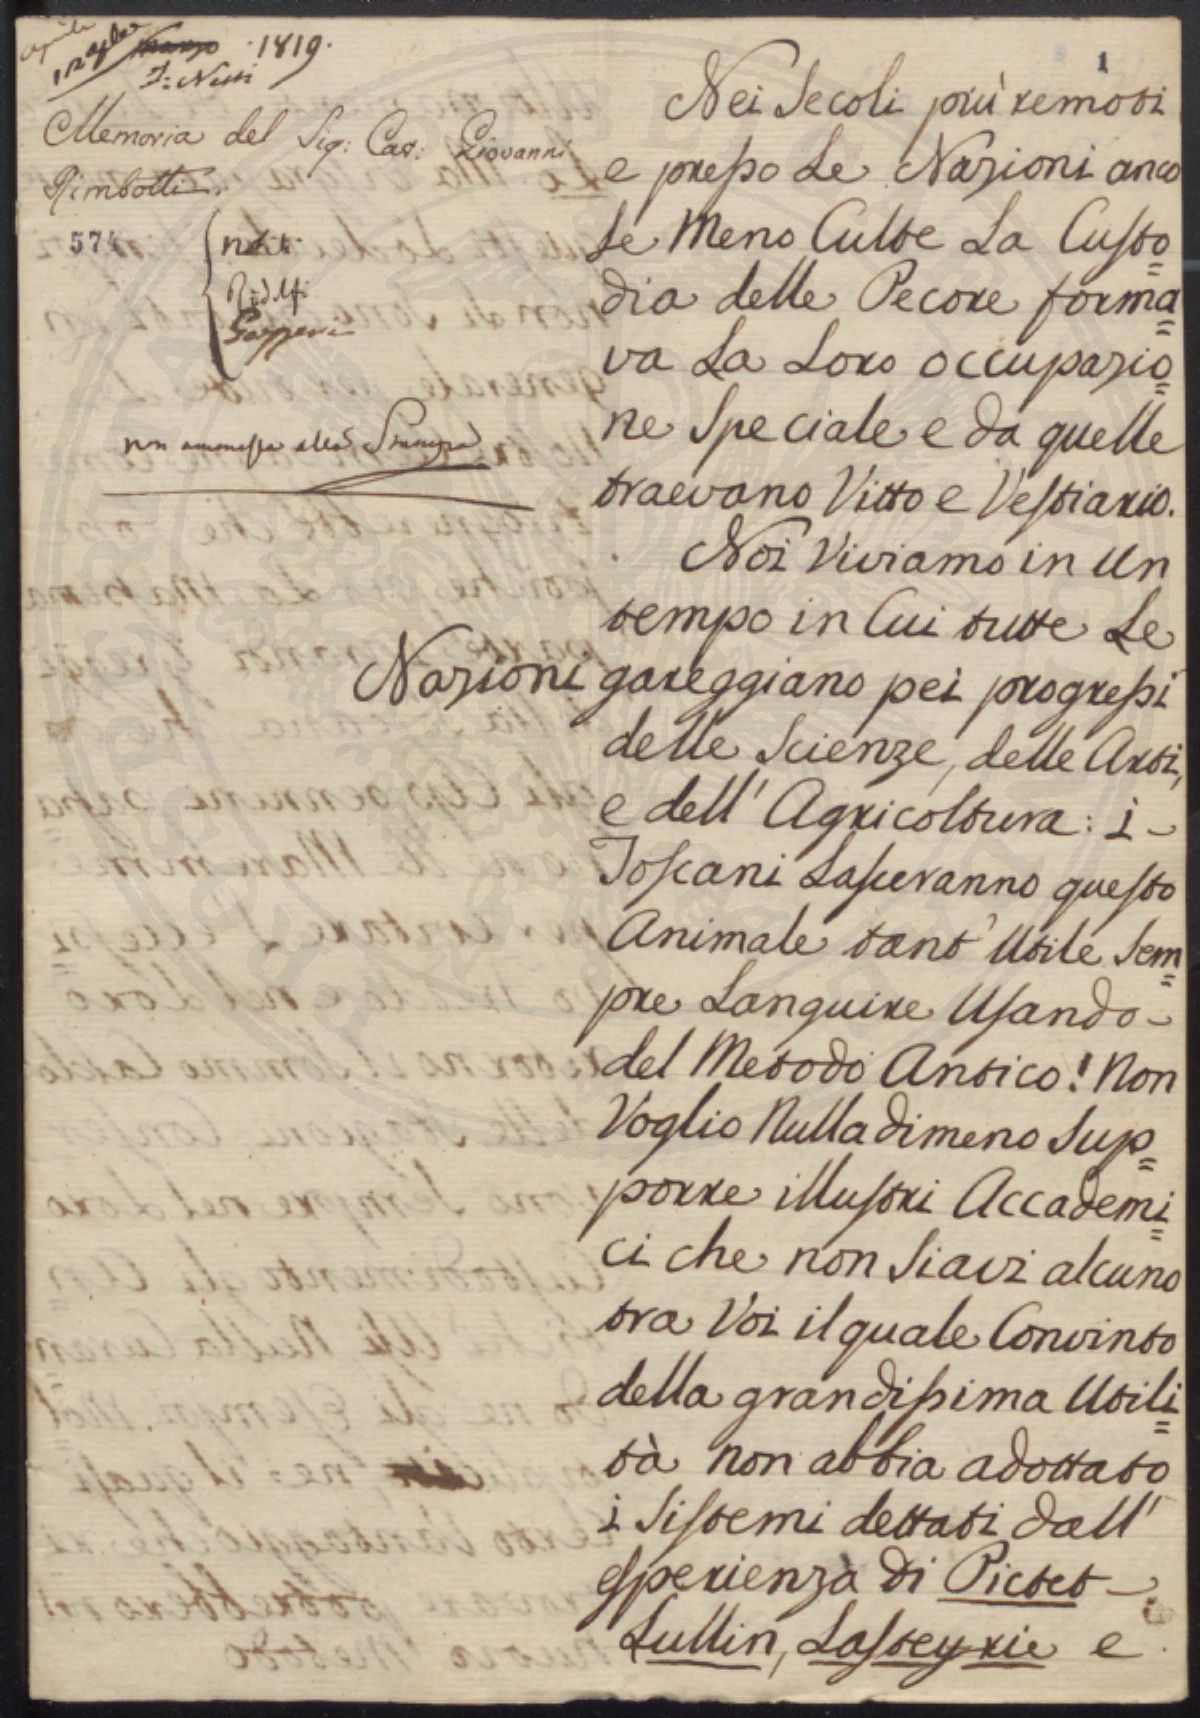 aprile
marzo 1819.
Memoria del Sig: Cav: Giovanni
Rimbotti.
574
Ridolfi
Gazzeri
non ammessa alla Stampa
1
Nei Secoli più remoti
e presso Le Nazioni anco
le Meno Culte La Custo=
dia delle Pecore forma=
va La Loro occupazio=
ne Speciale e da quelle
traevano Vitto e Vestiario.
Noi Viviamo in Un
tempo in Cui tutte Le
Nazioni gareggiano pei progressi
delle Scienze, delle Arti,
e dell' Agricoltura: i
Toscani Lasceranno questo
Animale tant' Utile Sem=
pre Languire Usando
del Metodo Antico! Non
Voglio Nulladimeno Sup=
porre illustri Accademi=
ci che non Siavi alcuno
tra Voi il quale Convinto
della grandissima Utili=
tà non abbia adottato
i Sistemi dettati dall'
esperienza di Pictet
Lullin, Lasteyrie e